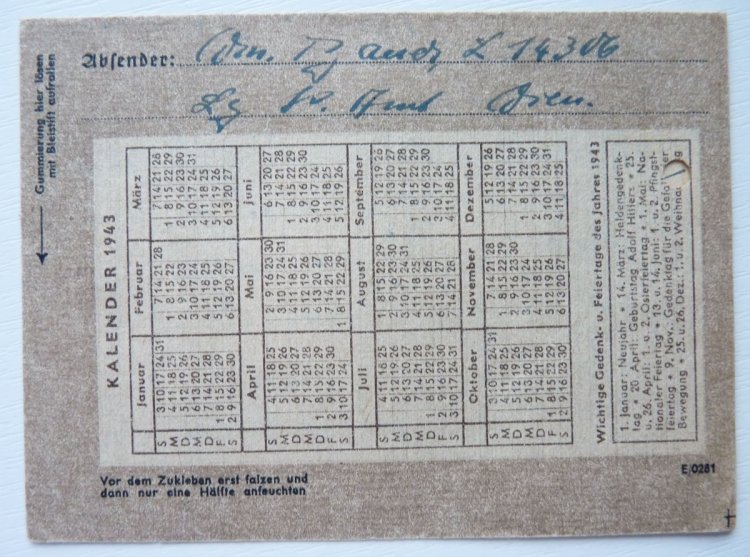 Absender: L 14306
Gummierung hier lösen
mit Bleistift aufrollen
KALENDER 1943
Januar Februar März
S 3 10 17 24 31 7 14 21 28 7 14 21 28
M 4 11 18 25 1 8 15 22 1 8 15 22 29
D 5 12 19 26 2 9 16 23 2 9 16 23 30
M 6 13 20 27 3 10 17 24 3 10 17 24 31
D 7 14 21 28 4 11 18 25 4 11 18 25
F 1 8 15 22 29 5 12 19 26 5 12 19 26
S 2 9 16 23 30 6 13 20 27 6 13 20 27
April Mai Juni
S 4 11 18 25 2 9 16 23 30 6 13 20 27
M 5 12 19 26 3 10 17 24 31 7 14 21 28
D 6 13 20 27 4 11 18 25 1 8 15 22 29
M 7 14 21 28 5 12 19 26 2 9 16 23 30
D 1 8 15 22 29 6 13 20 27 3 10 17 24
F 2 9 16 23 30 7 14 21 28 4 11 18 25
S 3 10 17 24 1 8 15 22 29 5 12 19 26
Juli August September
S 4 11 18 25 1 8 15 22 29 5 12 19 26
M 5 12 19 26 2 9 16 23 30 6 13 20 27
D 6 13 20 27 3 10 17 24 31 7 14 21 28
M 7 14 21 28 4 11 18 25 1 8 15 22 29
D 1 8 15 22 29 5 12 19 26 2 9 16 23 30
F 2 9 16 23 30 6 13 20 27 3 10 17 24
S 3 10 17 24 31 7 14 21 28 4 11 18 25
Oktober November Dezember
S 3 10 17 24 31 7 14 21 28 5 12 19 26
M 4 11 18 25 1 8 15 22 29 6 13 20 27
D 5 12 19 26 2 9 16 23 30 7 14 21 28
M 6 13 20 27 3 10 17 24 1 8 15 22 29
D 7 14 21 28 4 11 18 25 2 9 16 23 30
F 1 8 15 22 29 5 12 19 26 3 10 17 24 31
S 2 9 16 23 30 6 13 20 27 4 11 18 25
Wichtige Gedenk- u. Feiertage des Jahres 1943
1. Januar: Neujahr * 14. März: Heldengedenk-
tag * 20 April: Geburtstag Adolf Hitlers * 25.
u. 26. April: 1. u. 2. Osterfeiertag * 1. Mai: Na-
tionaler Feiertag * 13. u. 14. Juni: 1. u. 2. Pfingst-
feiertag * 9. Nov.: Gedenktag für die
Bewegung * 25. u. 26. Dez.: 1. u. 2.
Vor dem Zukleben erst falzen und
dann nur eine Hälfte anfeuchten
E/0281